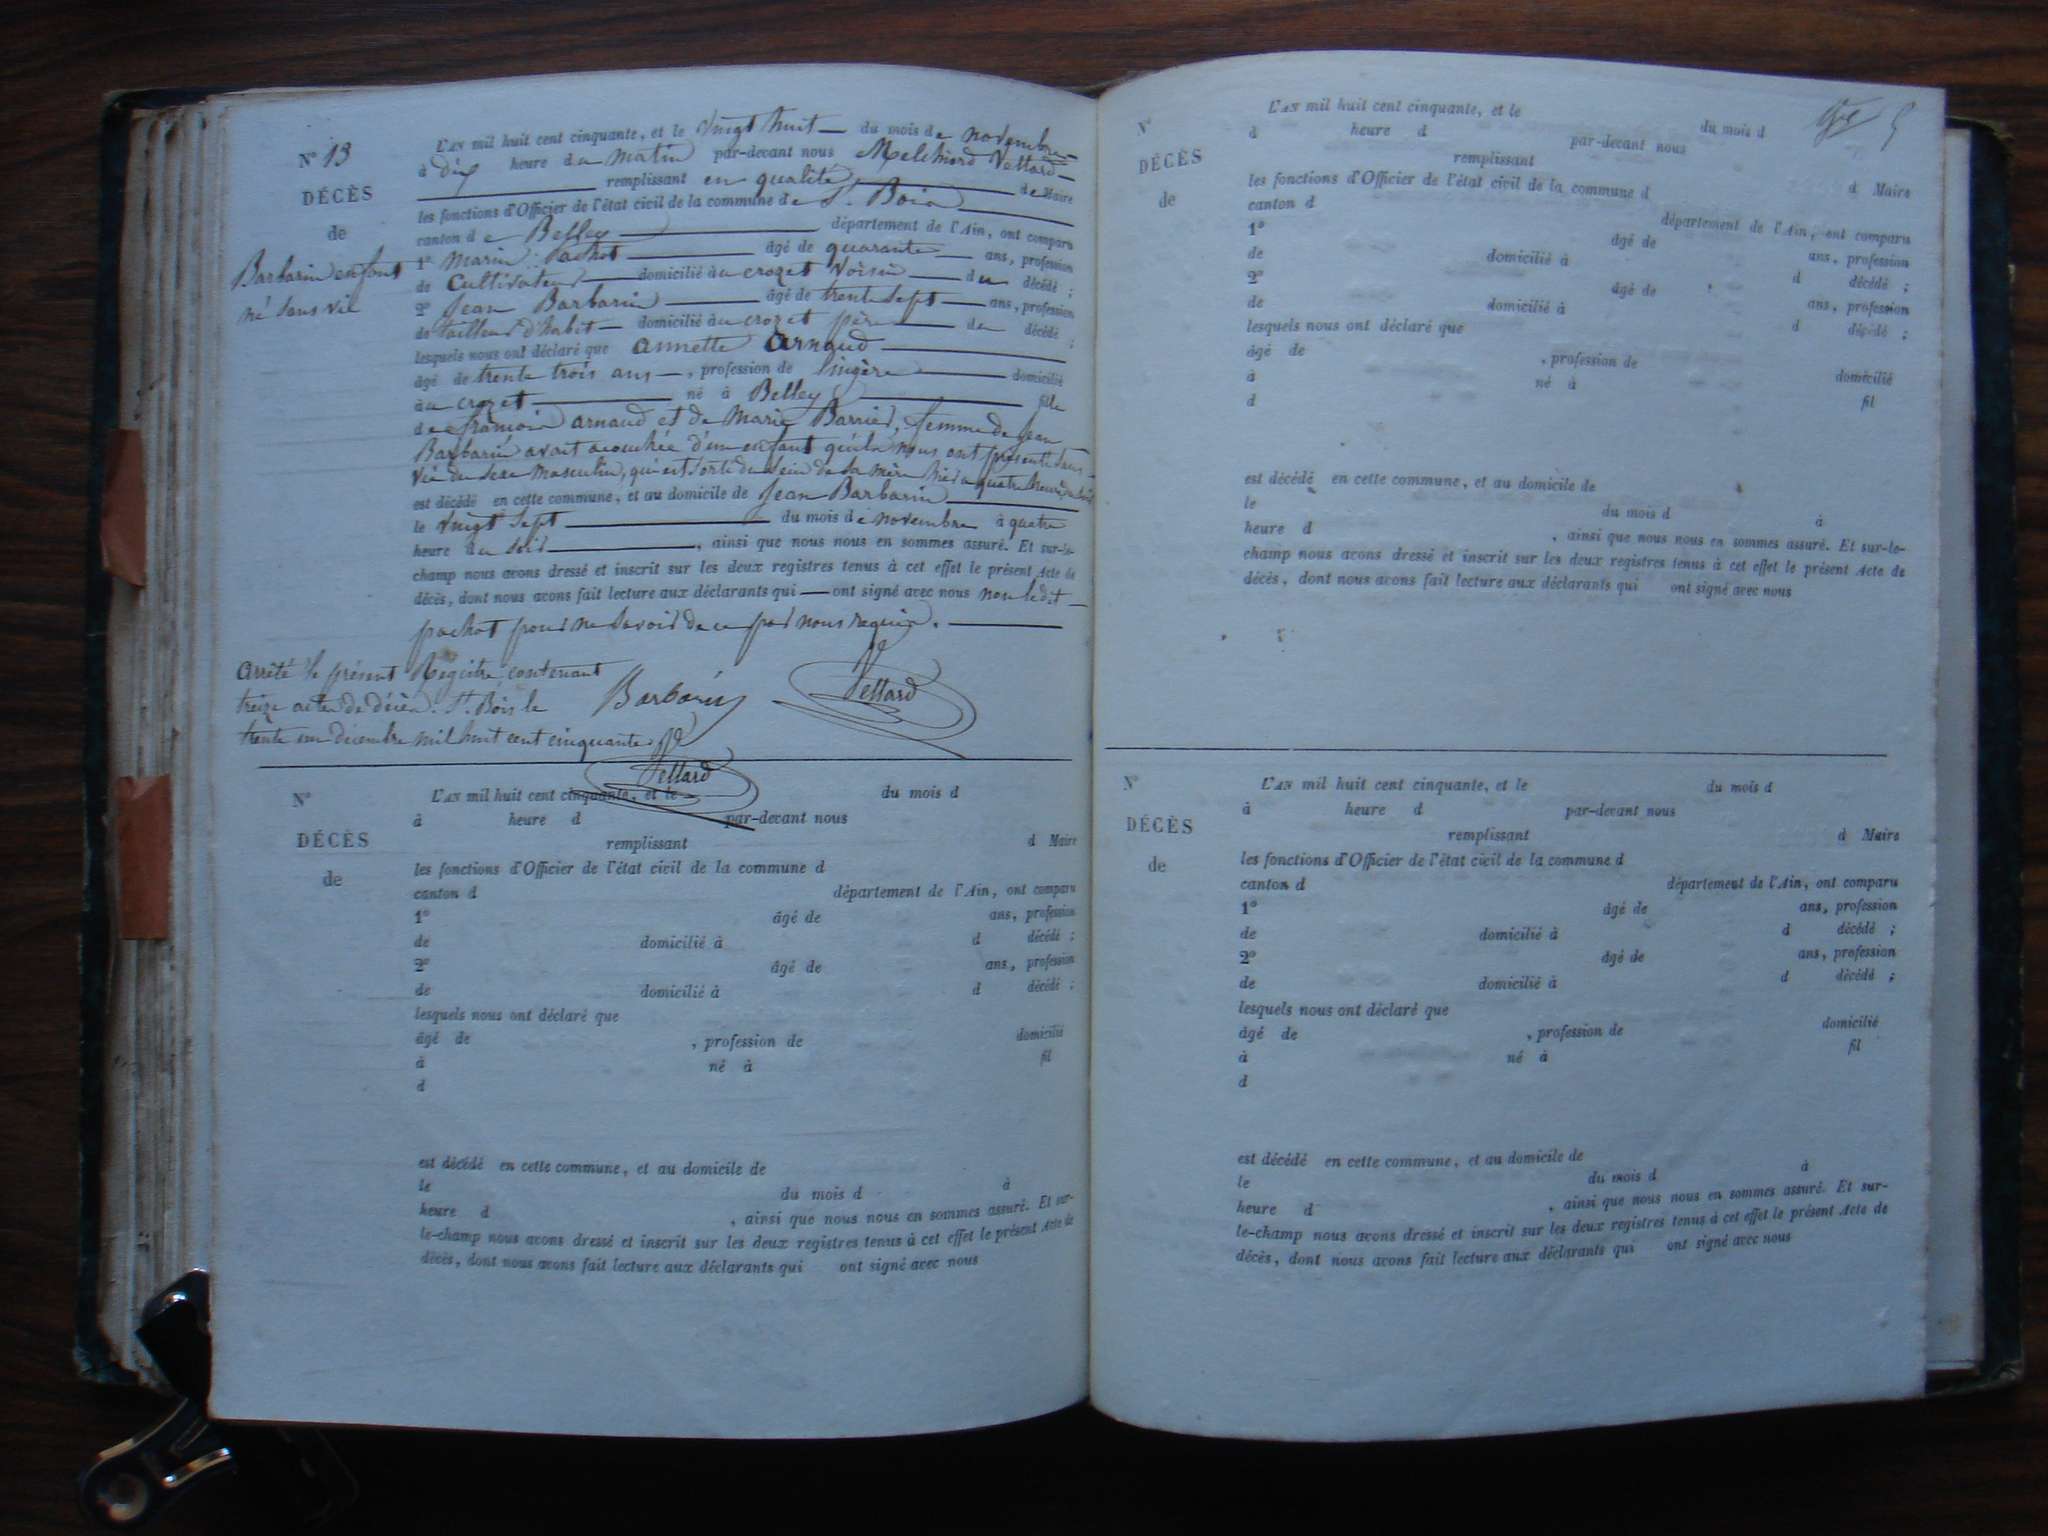 N° 13
DÉCÈS
de
Barbarin enfant
né sans vie
L'AN mil huit cent cinquante, et le vingt huit du mois de novembre
à dix heure du matin par-devant nous Melchiord Vettard
remplissant en qualité de Maire
les fonctions d'Officier de l'état civil de la commune de St. Bois
canton de Belley département de l'Ain, ont comparu
1° Marin Pachot âgé de quarante ans, profession
de Cultivateur domicilié au crozet voisin du décédé ;
2° Jean Barbarin âgé de trente sept ans, profession
de tailleur d'habit domicilié au crozet père du décédé ;
lesquels nous ont déclaré que annette arnaud
âgé de trente trois ans, profession de lingère domicilié
au crozet né à Belley fille
de françois arnaud et de Marie Barrier, femme de Jean
Barbarin avait acouchée d'un enfant qu'ils nous ont présenté sans
vie du sexe masculin, qui est sorti du sein de sa mère hier à quatre heures du soir
est décédé en cette commune, et au domicile de Jean Barbarin
le vingt sept du mois de novembre à quatre
heure du soir, ainsi que nous nous en sommes assuré. Et sur-le-
champ nous avons dressé et inscrit sur les deux registres tenus à cet effet le présent Acte de
décès, dont nous avons fait lecture aux déclarants qui ont signé avec nous non ledit
pachot pour ne savoir de ce par nous requis.
arrêté le présent Régistre contenant
treize actes de décès. St. Bois le
trente un décembre mil huit cent cinquante
Barbarin
Vettard
Vettard
N°
DÉCÈS
de
L'AN mil huit cent cinquante, et le du mois d
à heure d par-devant nous
remplissant d Maire
les fonctions d'Officier de l'état civil de la commune d
canton d département de l'Ain, ont comparu
1° âgé de ans, profession
de domicilié à d décédé ;
2° âgé de ans, profession
de domicilié à d décédé ;
lesquels nous ont déclaré que
âgé de , profession de domicilié
à né à fil
d
est décédé en cette commune, et au domicile de
le du mois d à
heure d , ainsi que nous nous en sommes assuré. Et sur-
le-champ nous avons dressé et inscrit sur les deux registres tenus à cet effet le présent Acte de
décès, dont nous avons fait lecture aux déclarants qui ont signé avec nous
N°
DÉCÈS
de
L'AN mil huit cent cinquante, et le du mois d
d heure d par-devant nous
remplissant d Maire
les fonctions d'Officier de l'état civil de la commune d
canton d département de l'Ain, ont comparu
1° âgé de ans, profession
de domicilié à d décédé ;
2° âgé de ans, profession
de domicilié à d décédé ;
lesquels nous ont déclaré que
âgé de , profession de domicilié
à né à fil
d
est décédé en cette commune, et au domicile de
le du mois d à
heure d , ainsi que nous nous en sommes assuré. Et sur-le-
champ nous avons dressé et inscrit sur les deux registres tenus à cet effet le présent Acte de
décès, dont nous avons fait lecture aux déclarants qui ont signé avec nous
N°
DÉCÈS
de
L'AN mil huit cent cinquante, et le du mois d
à heure d par-devant nous
remplissant d Maire
les fonctions d'Officier de l'état civil de la commune d
canton d département de l'Ain, ont comparu
1° âgé de ans, profession
de domicilié à d décédé ;
2° âgé de ans, profession
de domicilié à d décédé ;
lesquels nous ont déclaré que
âgé de , profession de domicilié
à né à fil
d
est décédé en cette commune, et au domicile de
le du mois d à
heure d , ainsi que nous nous en sommes assuré. Et sur-
le-champ nous avons dressé et inscrit sur les deux registres tenus à cet effet le présent Acte de
décès, dont nous avons fait lecture aux déclarants qui ont signé avec nous